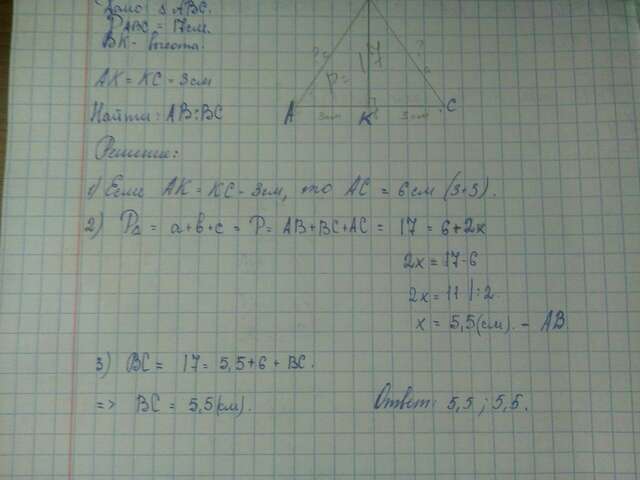 Дано: Δ ABC.
P ABC = 17см.
BK - высота.
AK = KC = 3см
Найти: AB; BC
?
P = 17
?
A
3см
K
3см
C
Решение:
1) Если AK = KC = 3см, то AC = 6см (3+3).
2) PΔ = a+b+c = P = AB+BC+AC = 17 = 6+2x
2x = 17-6
2x = 11 |:2
x = 5,5(см). - AB
3) BC = 17 = 5,5+6+BC.
=> BC = 5,5(см).
Ответ: 5,5 ; 5,5.